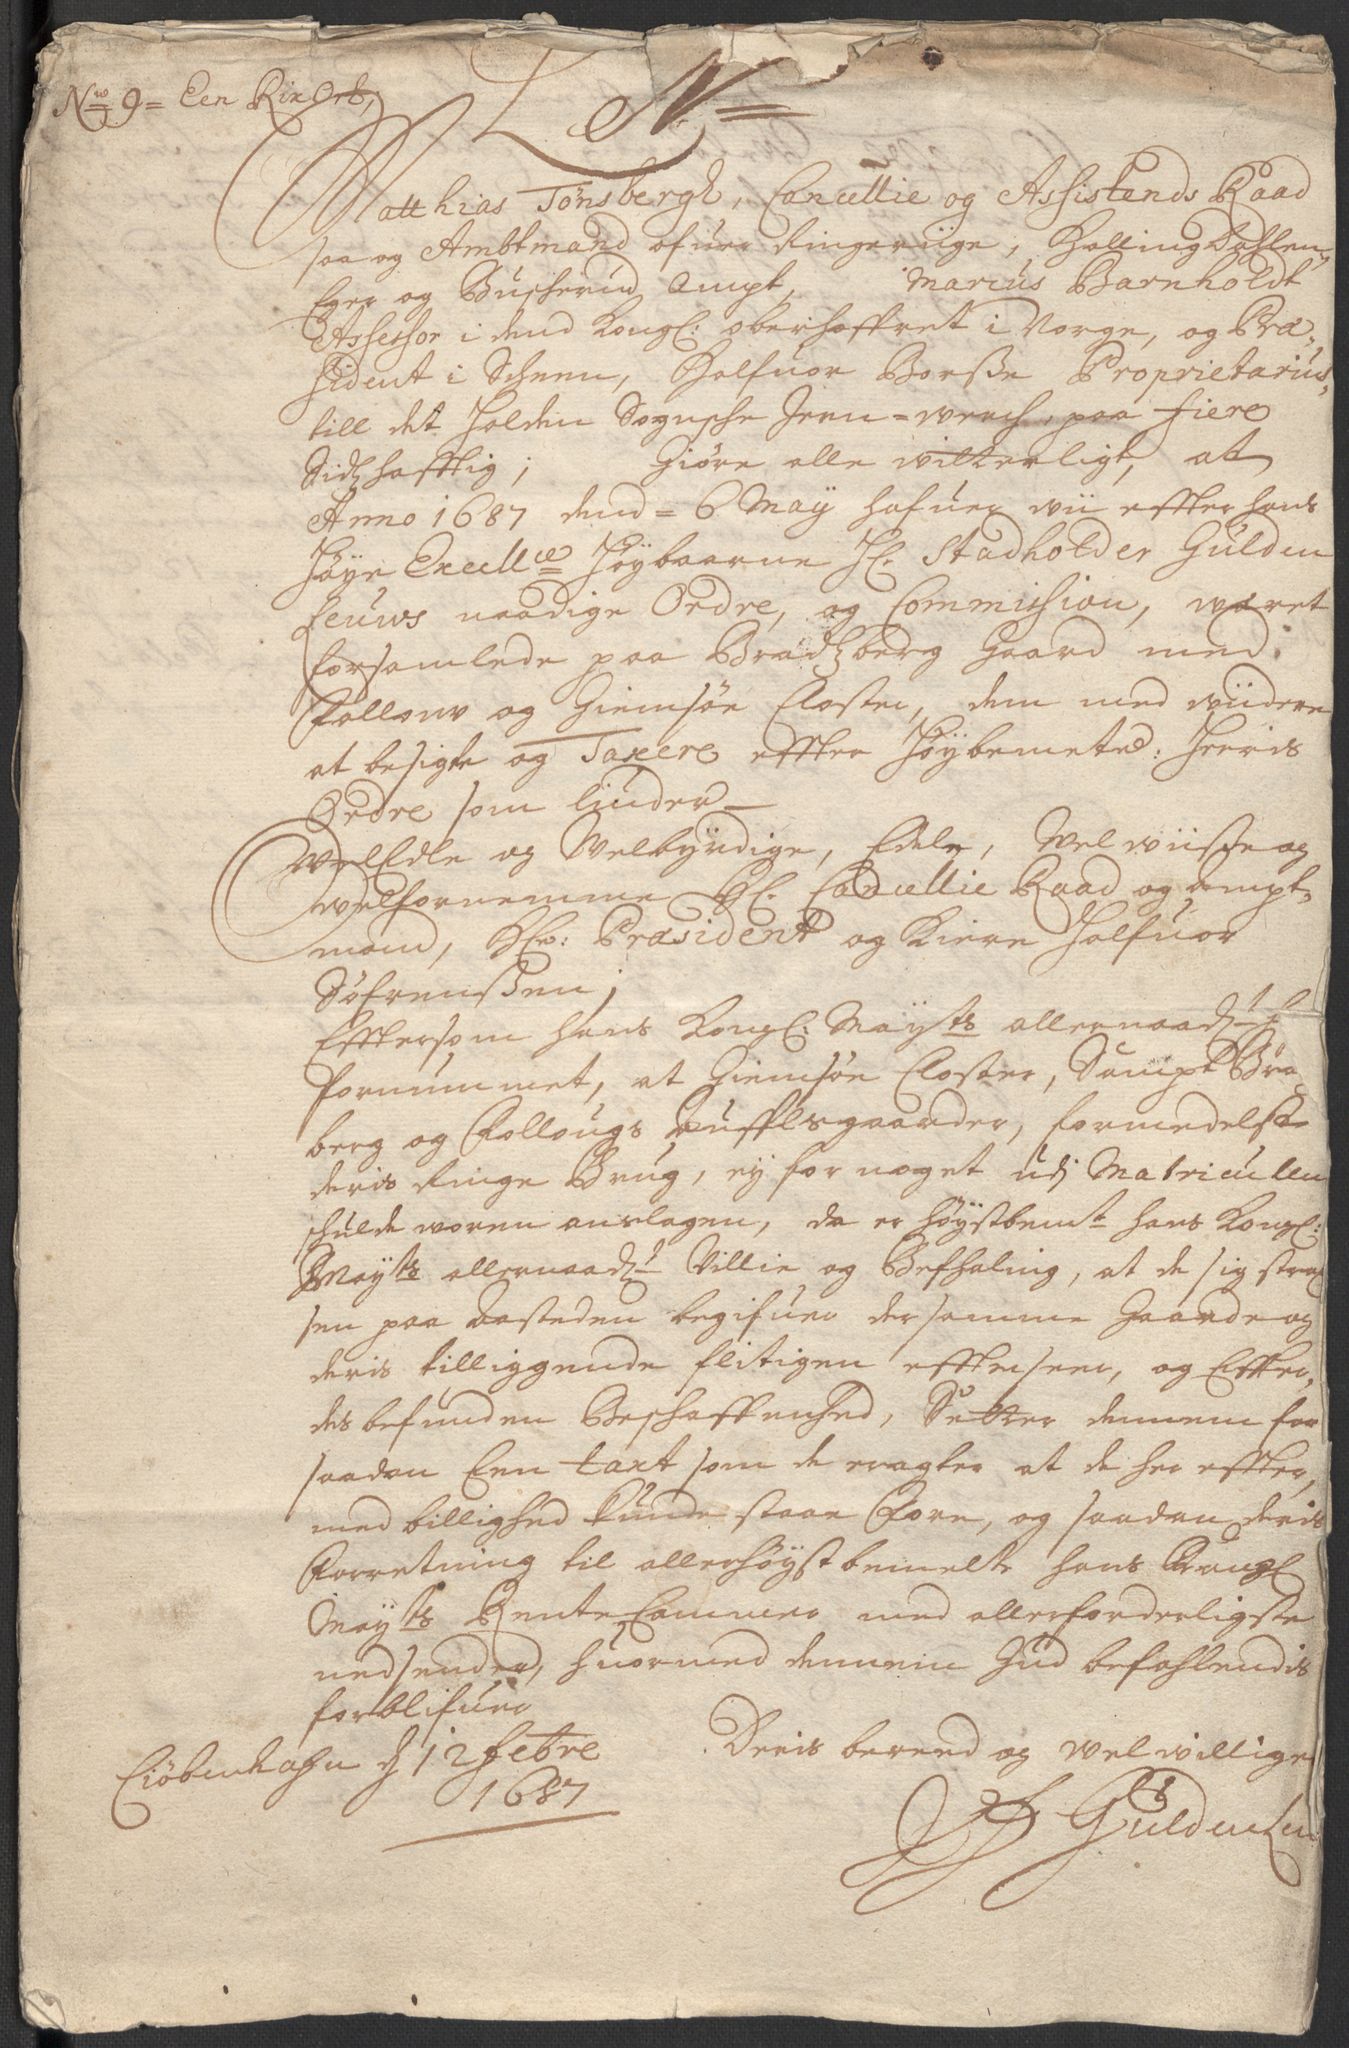 No 9 = Een Rix Ort,
N
Matthias Tønsbergh, Cancellie og Assistends Raad
saa og Ambtmand ofuer Ringeriige, Hallingdahlen,
Eger og Buscherud Ampt, Marcus Barnholdt
Assessor i dend Kongl: oberhoffret i Norge, og Præ-
sident i Scheen, Halfuor Borsse Proprietarius
till det Holden Sognsche Jern-werch, paa Fiere
Sidhafftig; Giøre alle witterligt, at
Anno 1687 dend = 6 May hafuer wii effter hans
Høye Excellce Høybaarne Hr. Stadholder Gulden
Leuws naadige Ordre, og Commission, wæret
forsamlede paa Bradtzberg Gaard med
Follow og Giemsøe Closter, dem med widere
at besigte og Taxere effter Høybemete: Herris
Ordre som liuder
WelEdle og Welbyrdige, Edele, Wel wiisse og
welfornemme Hr. Cancellie Raad og Ampt-
mand, Hr: Præsident og Kiere Halfuor
Søfrenssen;
Efftersom hans Kongl: Mayts allernaadt
fornummet, at Giemsøe Closter, Sampt Bra
berg og Follougs Sufflsgaarder, formedelst
deris Ringe Brug, ey for noget udj Matriculen
schulde woren anslagen, da er høystbemte hans Kongl:
Mayts allernaadt Villie og Befhaling, at de sig strax
sen paa Aasteden begifuer der samme Gaarde og
deris tilliggende flitigen effterseer, og Effter
des befunden Beschaffenhed, Setter dennem for
saadan Een taxt som de eragter at de her effter,
med billighed kunde staae Fore, og saadan deris
Forretning til allerhøystbemelte hans Kongl
Mayts Rente Cammer med allerforderligste
nedsender, huormed dennem Gud befahlendis
forblifuer
Ciøbenhafn d 12 Febre
1687
Deris bereed og welwillige
Gülden Leu